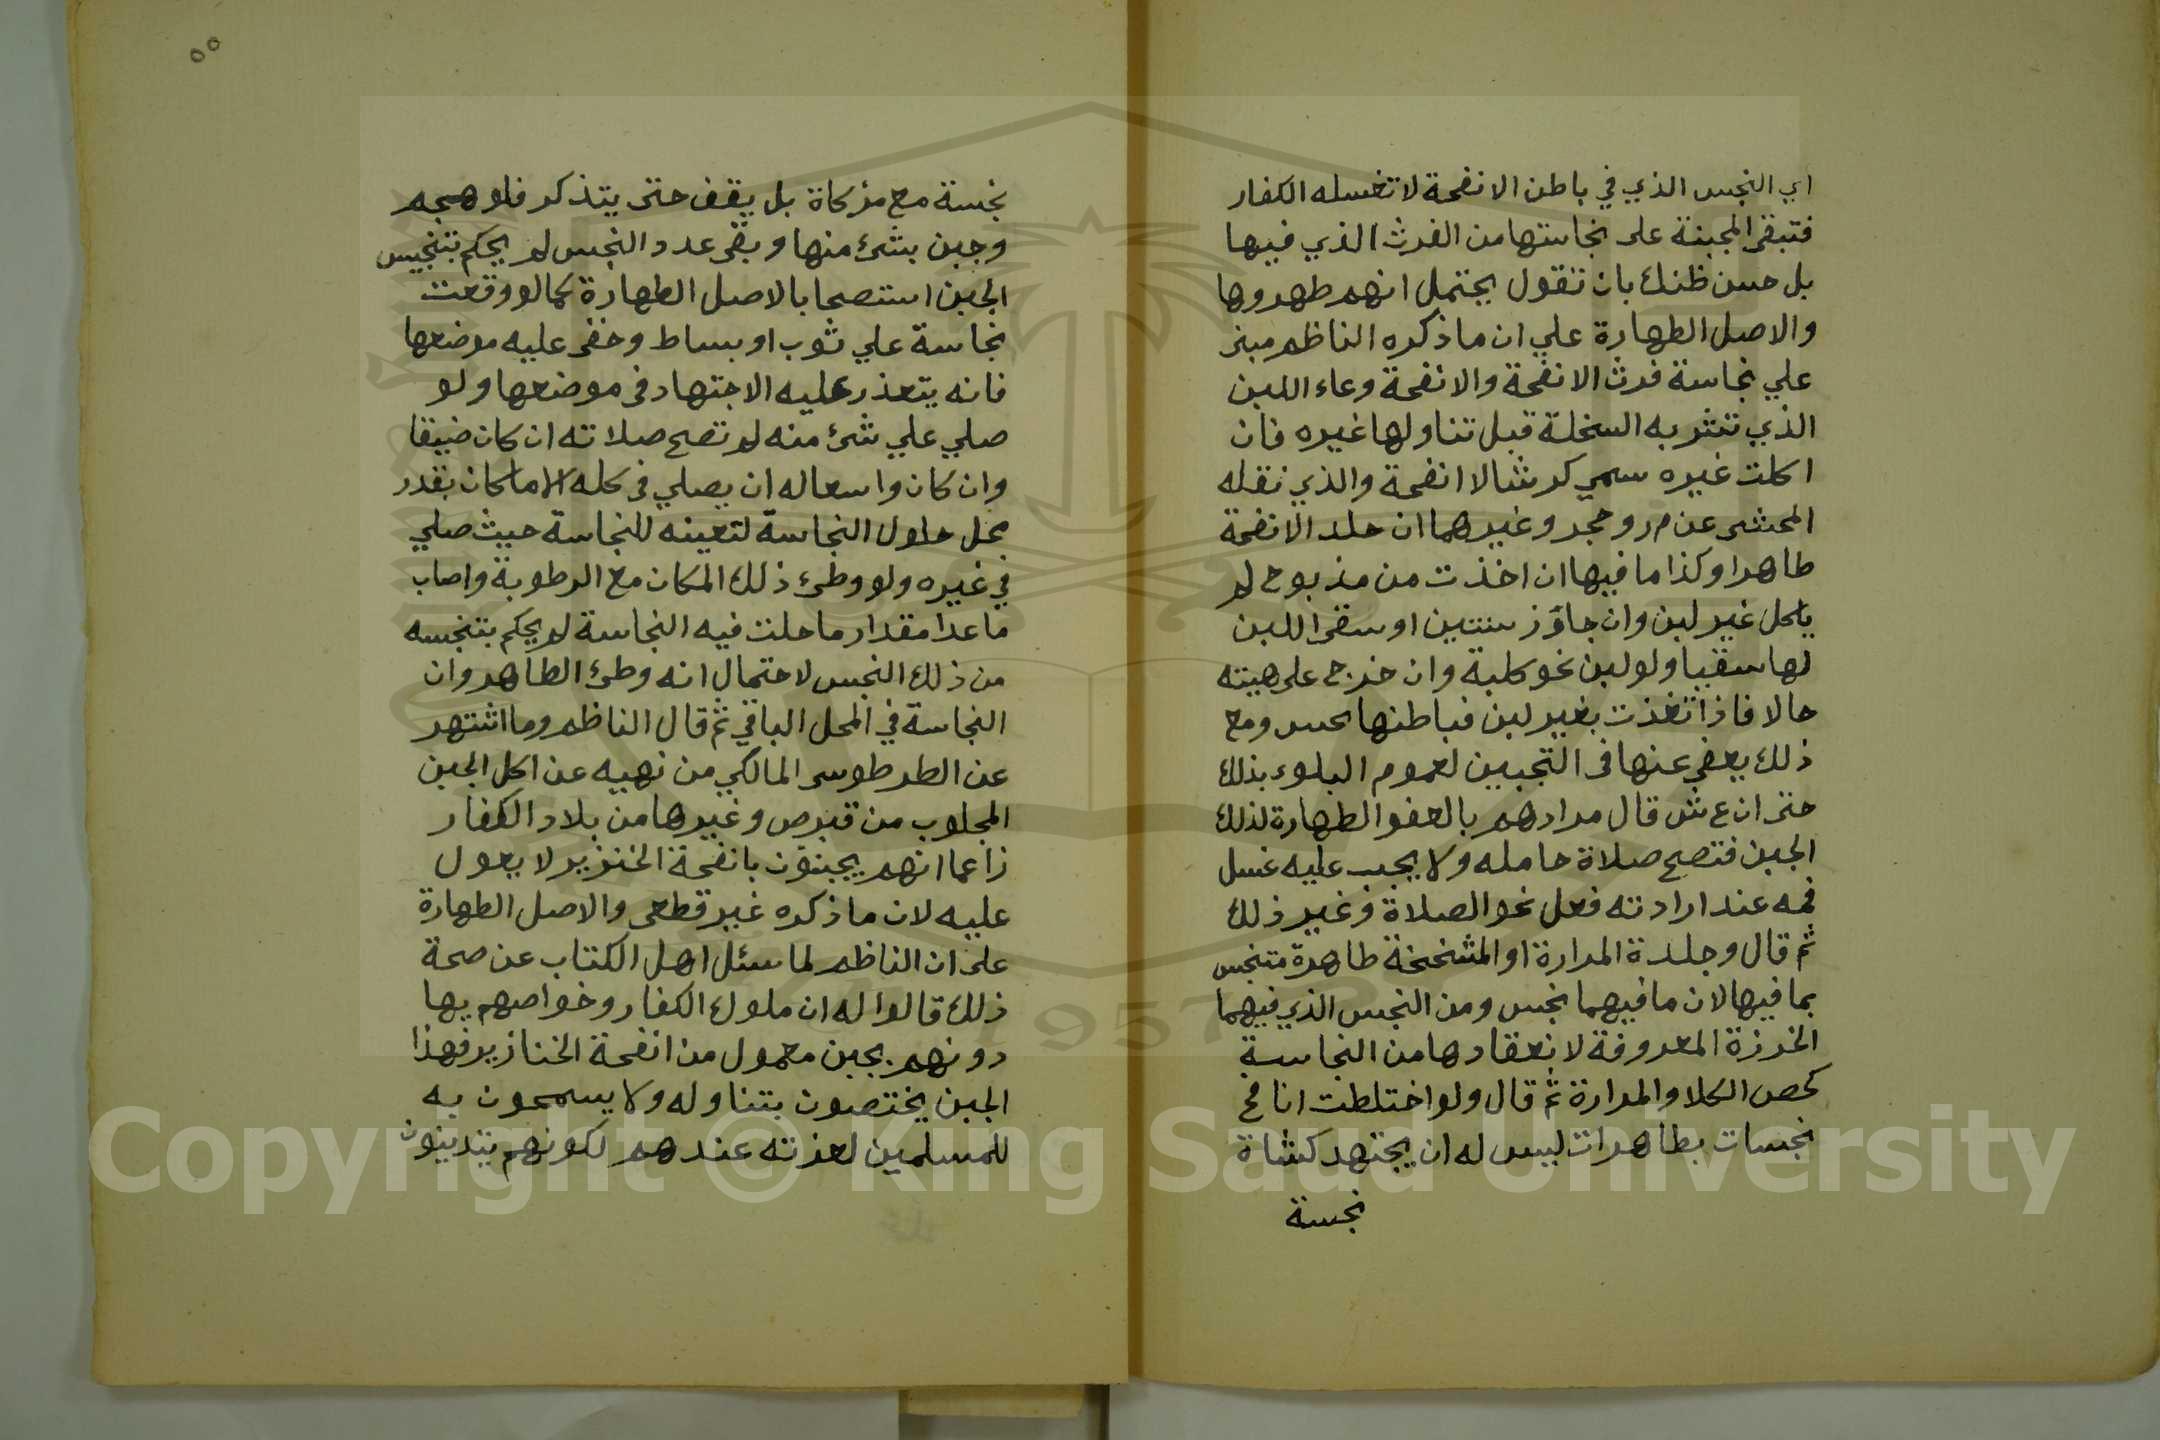 اي النجس الذي في باطن الانفحة لا تغسله الكفار
فتبقى المجبنة على نجاستها من الفرث الذي فيها
بل حسن ظنك بان تقول يحتمل انهم طهروها
والاصل الطهارة علي ان ما ذكره الناظم مبنى
علي نجاسة فرث الانفحة والانفحة وعاء اللبن
الذي تشربه السخلة قبل تناولها غيره فان
اكلت غيره سمي كرشا لا انفحة والذي نقله
المحشى عن م ر وحجر وغيرهما ان جلد الانفحة
طاهرا وكذا ما فيها ان اخذت من مذبوح لم
ياكل غير لبن وان جاوز سنتين او سقى اللبن
لها سقيا ولو لبن نحو كلبة وان خرج على هيئته
حالا فاذا تغذت بغير لبن فباطنها نجس ومع
ذلك يعفى عنها فى التجبين لعموم البلوء بذلك
حتى ان ع ش قال مرادهم بالعفو الطهارة لذلك
الجبن فتصح صلاة حامله ولا يجب عليه غسل
فمه عند ارادته فعل نحو الصلاة وغير ذلك
ثم قال وجلدة المرارة او المشخخة طاهرة متنجس
بما فيها لان ما فيهما نجس ومن النجس الذي فيهما
الخرزة المعروفة لانعقادها من النجاسة
كحص الكلا والمرارة ثم قال ولو اختلطت انافح
نجسات بطاهرات ليس له ان يجتهد كشاة
نجسة
٥٥
نجسة مع مزكاة بل يقف حتى يتذكر فلو هجم
وجبن بشئ منها وبقى عدد النجس لم يحكم بتنجيس
الجبن استصحابا لاصل الطهارة كما لو وقعت
نجاسة علي ثوب او بساط وخفى عليه موضعها
فانه يتعذر عليه الاجتهاد فى موضعها ولو
صلي علي شئ منه لم تصح صلاته ان كان ضيقا
وان كان واسعا له ان يصلي فى كله الا ما كان بقدر
محل حلول النجاسة لتعينه للنجاسة حيث صلي
في غيره ولو وطئ ذلك المكان مع الرطوبة واصاب
ما عدا مقدار ما حلت فيه النجاسة لم يحكم بتنجسه
من ذلك النجس لاحتمال انه وطئ الطاهر وان
النجاسة في المحل الباقي ثم قال الناظم وما اشتهر
عن الطرطوسى المالكي من نهيه عن اكل الجبن
المجلوب من قبرص وغيرها من بلاد الكفار
زاعما انهم يجبنون بانفحة الخنزير لا يعول
عليه لان ما ذكره غير قطعى والاصل الطهارة
على ان الناظم لما سئل اهل الكتاب عن صحة
ذلك قالوا له ان ملوك الكفار وخواصهم يها
دونهم بجبن معمول من انفحة الخنازير فهذا
الجبن يختصون بتناوله ولا يسمحون به
للمسلمين لعزته عندهم لكونهم يتدينون
Copyright © King Saud University
1957